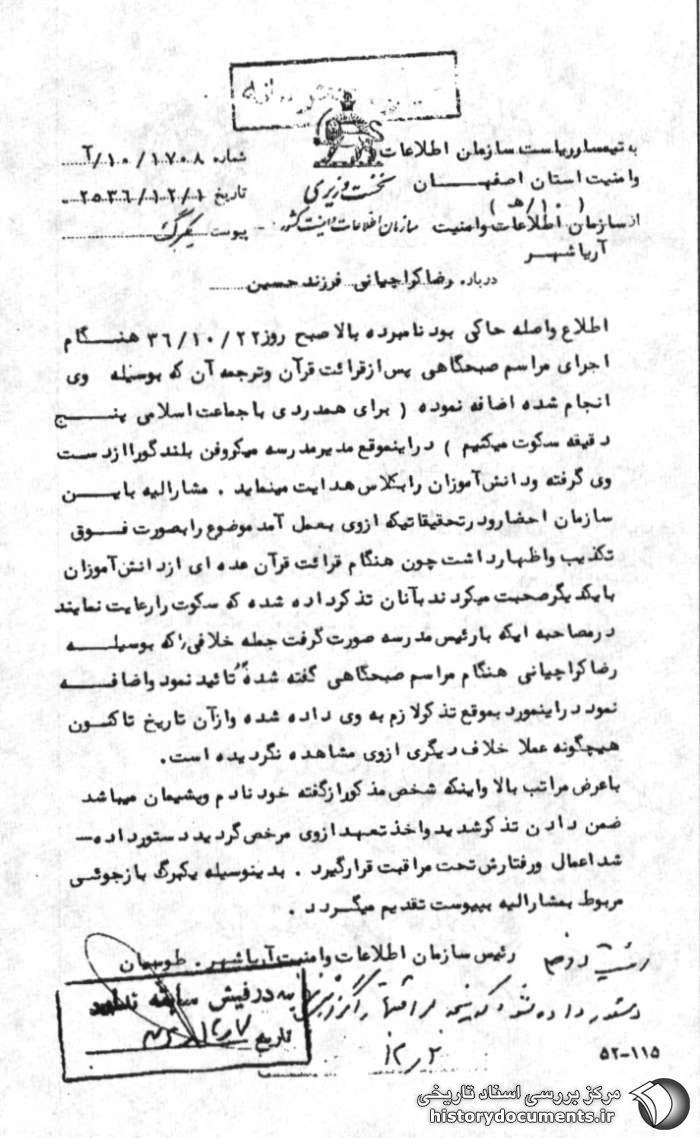 به تیمسار ریاست سازمان اطلاعات
وامنیت استان اصفهان
( ۱۰/هـ )
نخست وزیری
سازمان اطلاعات و امنیت کشور
از سازمان اطلاعات وامنیت
آریاشهر
شماره ۱۷۰۸/۱۰/آ
تاریخ ۲۵۳۶/۱۲/۱
پیوست یکبرگ
درباره رضاکراچیانی فرزند حسین
اطلاع واصله حاکی بود نامبرده بالا صبح روز ۳۶/۱۰/۲۲ هنگام
اجرای مراسم صبحگاهی پس ازقرائت قرآن وترجمه آن که بوسیله وی
انجام شده اضافه نموده ( برای همدردی با جماعت اسلامی پنج
دقیقه سکوت میکنیم ) دراینموقع مدیرمدرسه میکروفن بلندگوراازدست
وی گرفته ودانش آموزان رابکلاس هدایت مینماید . مشارالیه باین
سازمان احضارودرتحقیقاتیکه ازوی بعمل آمد موضوع رابصورت فوق
تکذیب واظهارداشت چون هنگام قرائت قرآن عده ای ازدانش آموزان
بایکدیگرصحبت میکردندبآنان تذکرداده شده که سکوت رارعایت نمایند
درمصاحبه ایکه بارئیس مدرسه صورت گرفت جمله خلافی را که بوسیله
رضاکراچیانی هنگام مراسم صبحگاهی گفته شده تائید نمود واضافه
نمود دراینمورد بموقع تذکرلازم به وی داده شده وازآن تاریخ تاکنون
هیچگونه عملا خلاف دیگری ازوی مشاهده نگردیده است.
باعرض مراتب بالا واینکه شخص مذکورازگفته خود نادم وپشیمان میباشد
ضمن دادن تذکرشدید واخذ تعهد ازوی مرخص گردید دستورداده
شد اعمال ورفتارش تحت مراقبت قرارگیرد . بدینوسیله یکبرگ بازجوئی
مربوط بمشارالیه بپیوست تقدیم میگردد .
رئیس سازمان اطلاعات وامنیت آریاشهر . طوسیان
دستور داده شد
به درفیش سابقه
تاریخ
۵۲-۱۱۵
مرکز بررسی اسناد تاریخی
historydocuments.ir